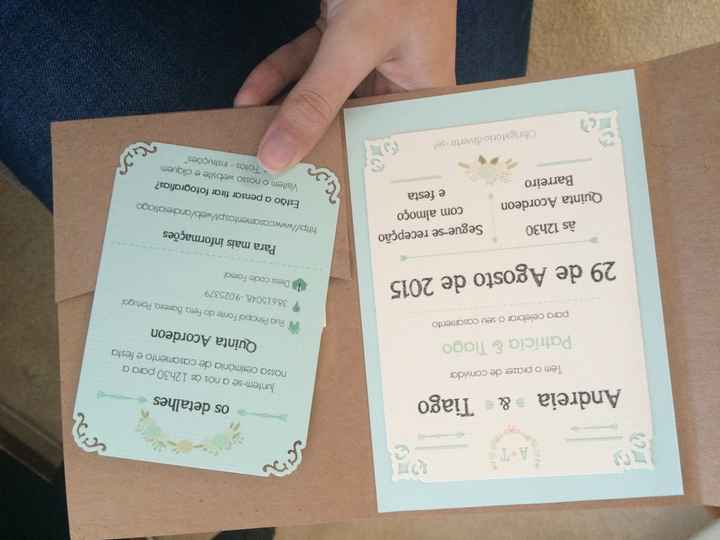 A + T
Andreia & Tiago
Tem o prazer de convidar
Patrícia & Tiago
para celebrar o seu casamento
29 de Agosto de 2015
às 12h30
Quinta Acordeon
Barreiro
Segue-se recepção
com almoço
e festa
Obrigatório divertir-se!
os detalhes
Juntem-se a nós às 12h30 para a
nossa cerimónia de casamento e festa
Quinta Acordeon
Rua Principal Fonte Feto, Barreiro, Portugal
38.615048,-9.025379
Dress code: Formal
Para mais informações
http://www.casamentos.pt/web/andreiatiago
Estão a pensar tirar fotografias?
Visitem o nosso website e cliquem
"Fotos - instruções"